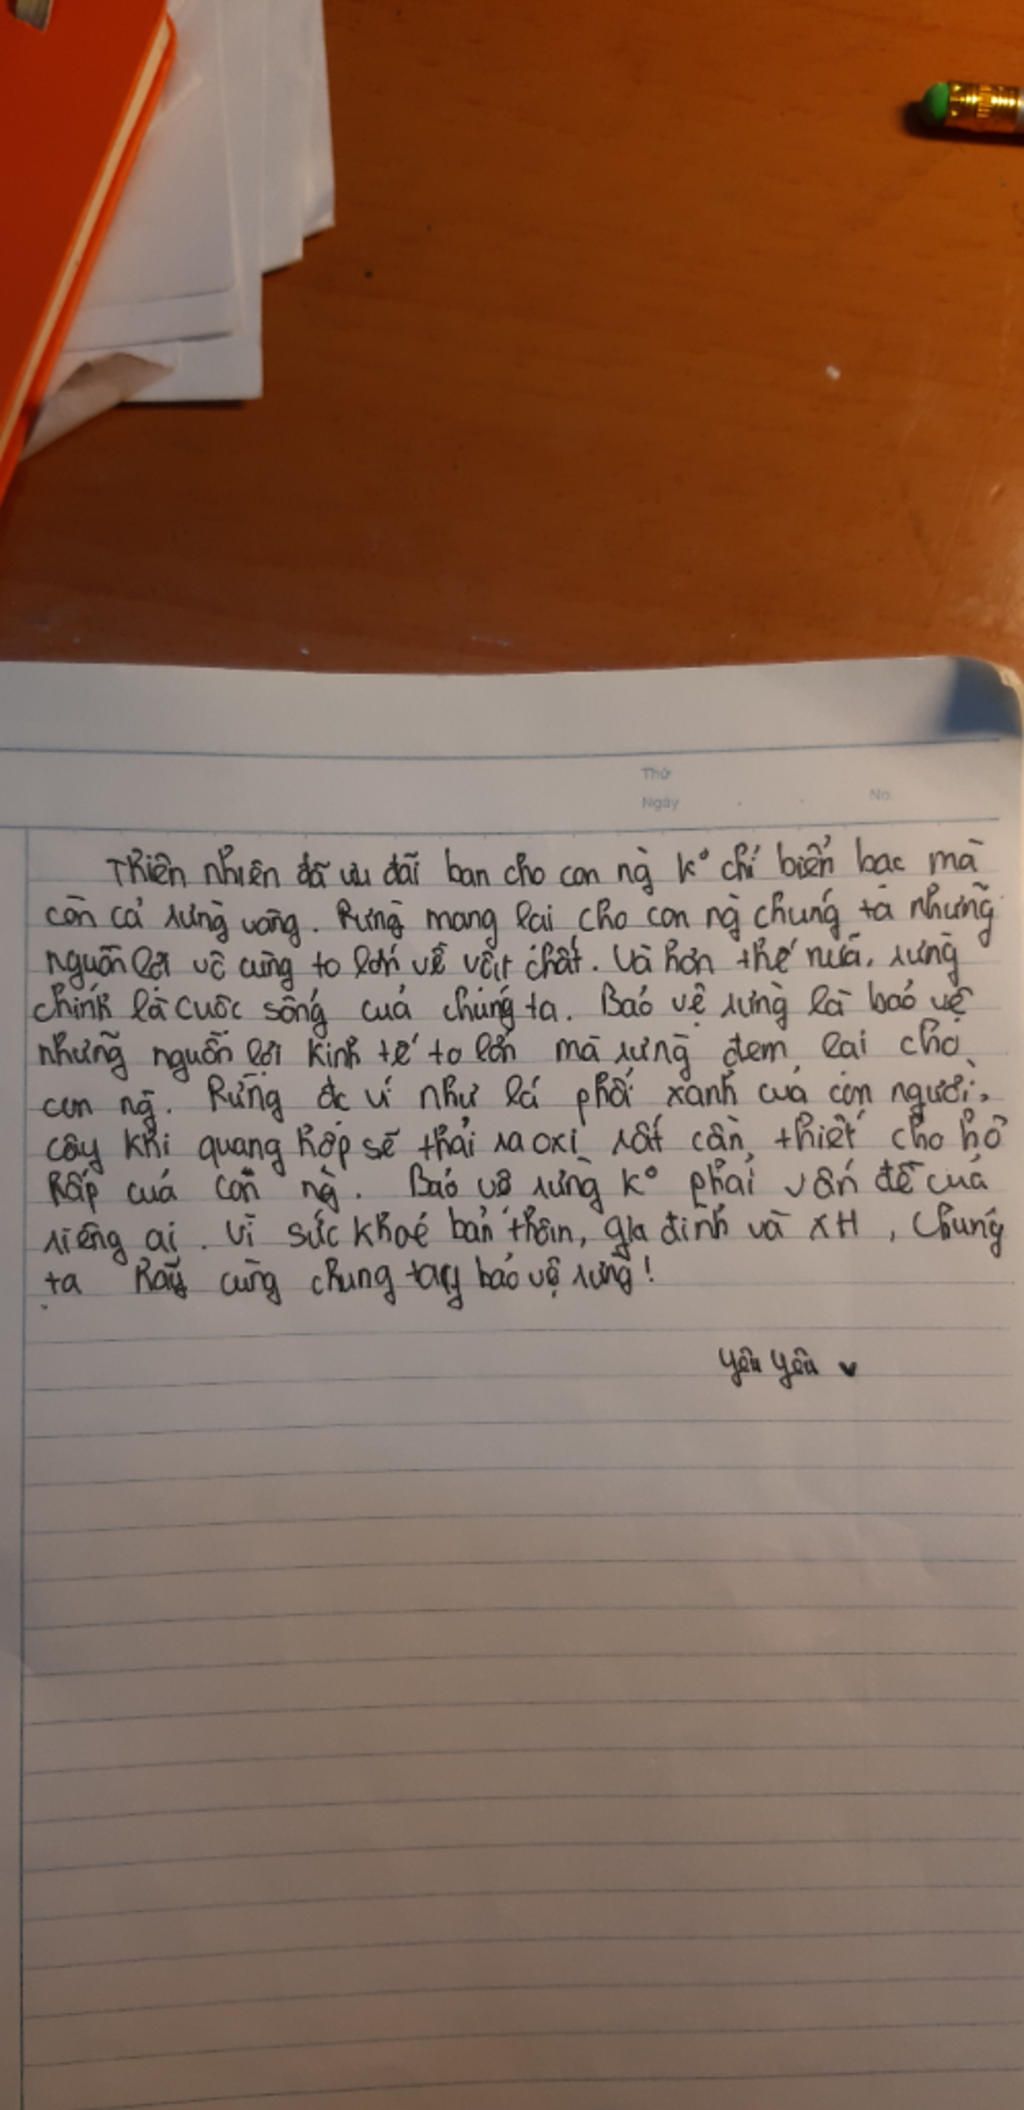 Thứ
Ngày No.
Thiên nhiên đã ưu đãi ban cho con ng` kº chỉ biển bạc mà
còn cả rừng vàng. Rừng mang lại cho con ng` chúng ta những
nguồn lợi vô cùng to lớn về vật chất. Và hơn thế nữa, rừng
chính là cuộc sống của chúng ta. Bảo vệ rừng là bảo vệ
những nguồn lợi kinh tế to lớn mà rừng đem lại cho
con ng`. Rừng đc ví như lá phổi xanh của con người,
cây khi quang hợp sẽ thải ra oxi rất cần thiết cho hô
hấp của con ng`. Bảo vệ rừng kº phải vấn đề của
riêng ai. Vì sức khoẻ bản thân, gia đình và XH, chúng
ta hãy cùng chung tay bảo vệ rừng!
yêu yêu